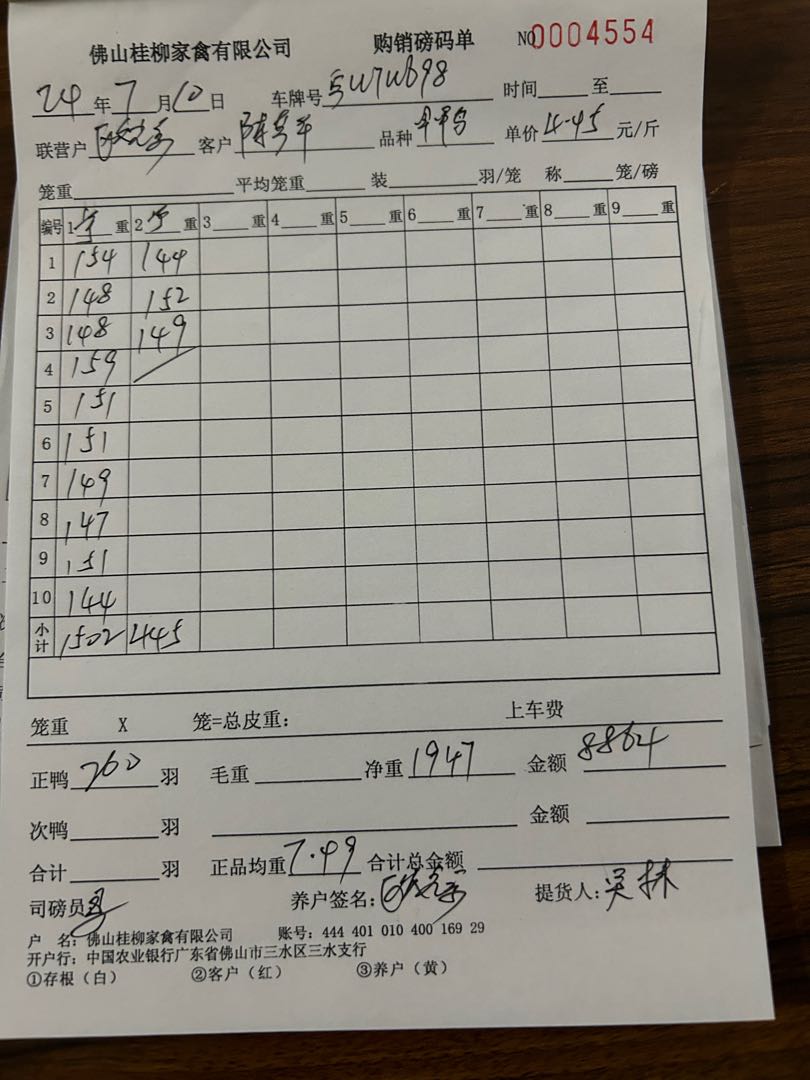 佛山桂柳家禽有限公司 购销磅码单 NO 0004554
24年7月10日 车牌号 时间 至
联营户 客户 品种 单价4.45元/斤
笼重 平均笼重 装 羽/笼 称 笼/磅
编号 1 重 2 重 3 重 4 重 5 重 6 重 7 重 8 重 9 重
1 154 144
2 148 152
3 148 149
4 159
5 151
6 151
7 149
8 147
9 151
10 144
小计 1502 445
笼重 X 笼=总皮重: 上车费
正鸭260羽 毛重 净重1947 金额8664
次鸭 羽 金额
合计 羽 正品均重7.49 合计总金额
司磅员 养户签名: 提货人:
户 名: 佛山桂柳家禽有限公司 账号: 444 401 010 400 169 29
开户行: 中国农业银行广东省佛山市三水区三水支行
①存根(白) ②客户(红) ③养户(黄)